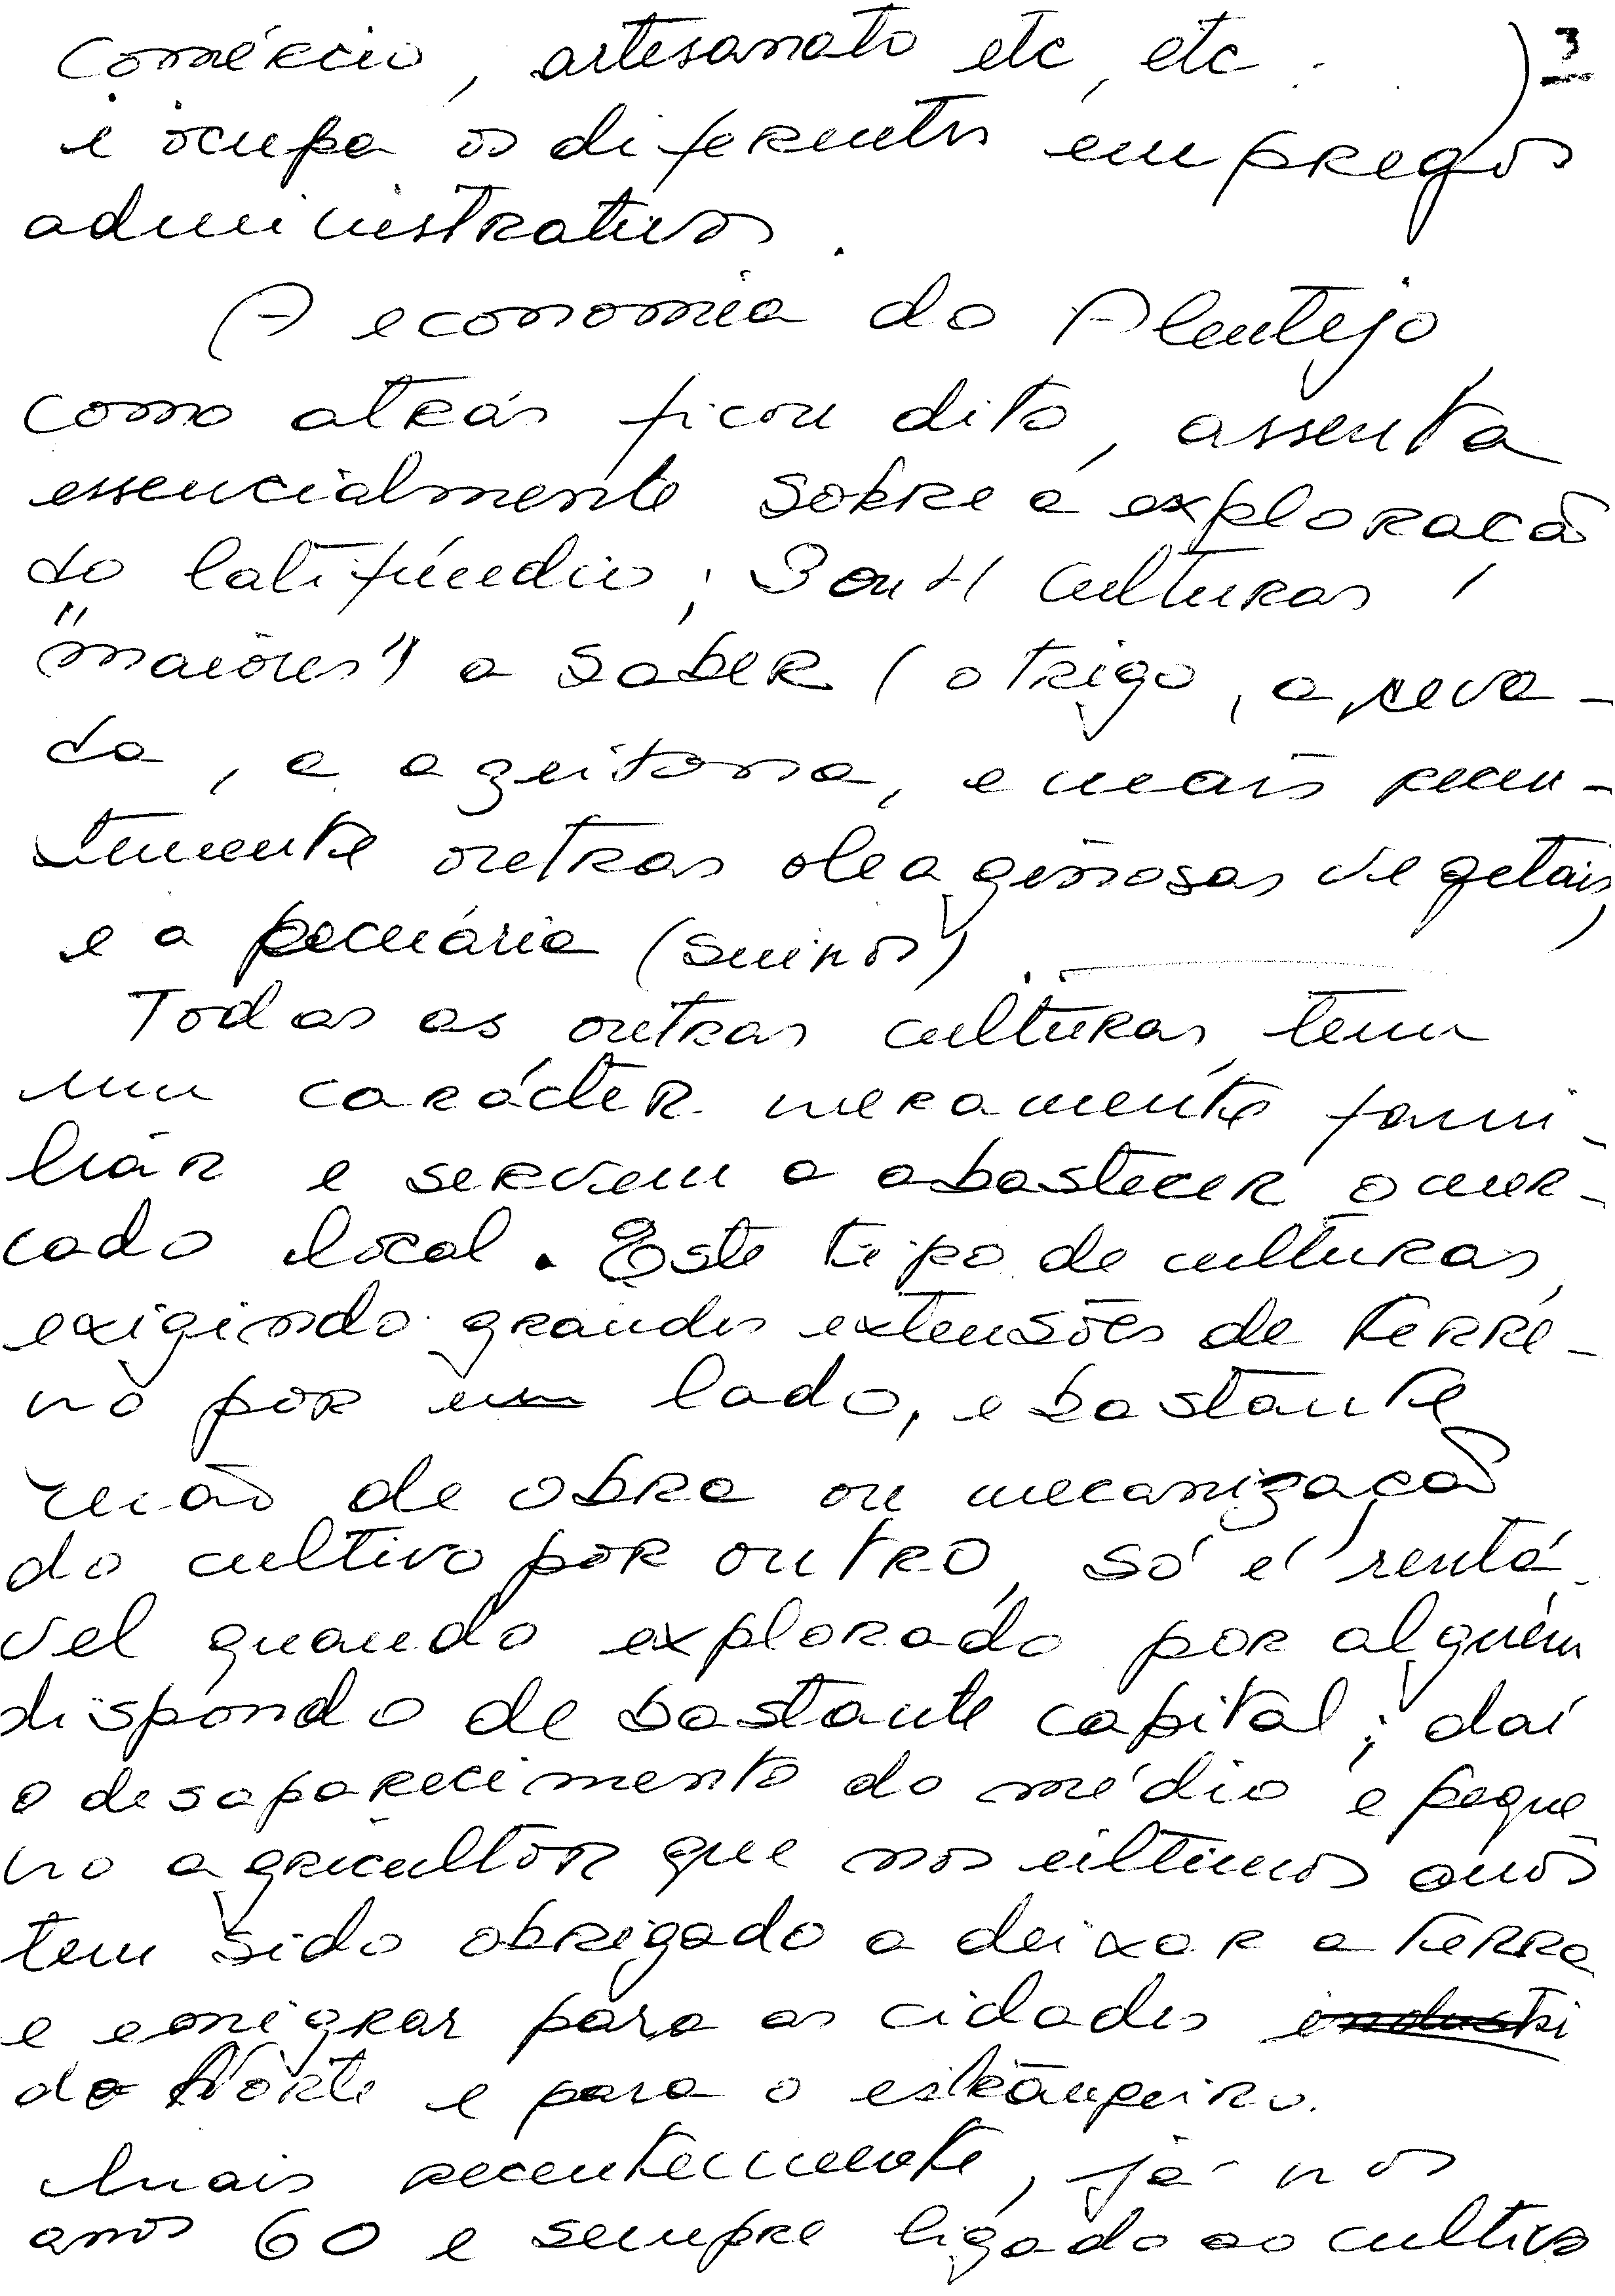 comércio, artesanato etc, etc. 3
e ocupa os diferentes empregos
administrativos.
A economia do Alentejo
como atrás ficou dito, assenta
essencialmente sobre a exploração
do latifúndio; 3 ou 4 culturas
"maiores" a saber (o trigo, a ceva-
da, a azeitona, e mais recen-
temente outras oleaginosas vegetais,
e a pecuária (suinos).
Todas as outras culturas, tem
um carácter meramente fami-
liar e servem a abastecer o mer-
cado local. Este tipo de culturas,
exigindo grandes extensões de terre-
no por um lado, e bastante
mão de obra ou mecanização
do cultivo por outro, só é rentá-
vel quando explorado por alguém
dispondo de bastante capital; daí
o desaparecimento do médio e peque
no agricultor que nos últimos anos
tem sido obrigado a deixar a terra
e emigrar para as cidades industri
do Norte e para o estrangeiro.
Mais recentemente, já nos
anos 60 e sempre ligado ao cultivo